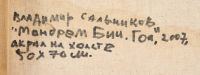 ВЛАДИМИР САЛЬНИКОВ
"МАНДРЕМ БИЧ. ГОА", 2007,
АКРИЛ НА ХОЛСТЕ
50 Х 70 СМ.